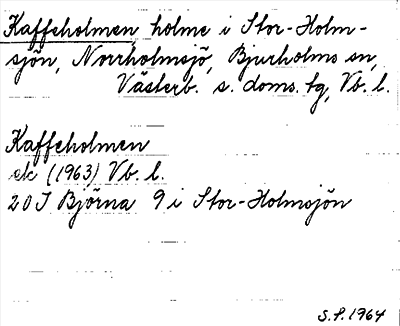 Kaffeholmen, holme i Stor-Holm-
sjön, Norrholmsjö, Bjurholms sn,
Västerb. s. doms. tg, Vb. l.
Kaffeholmen
ek (1963) Vb. l.
20 J Björna 9 i Stor-Holmsjön
S.F. 1964